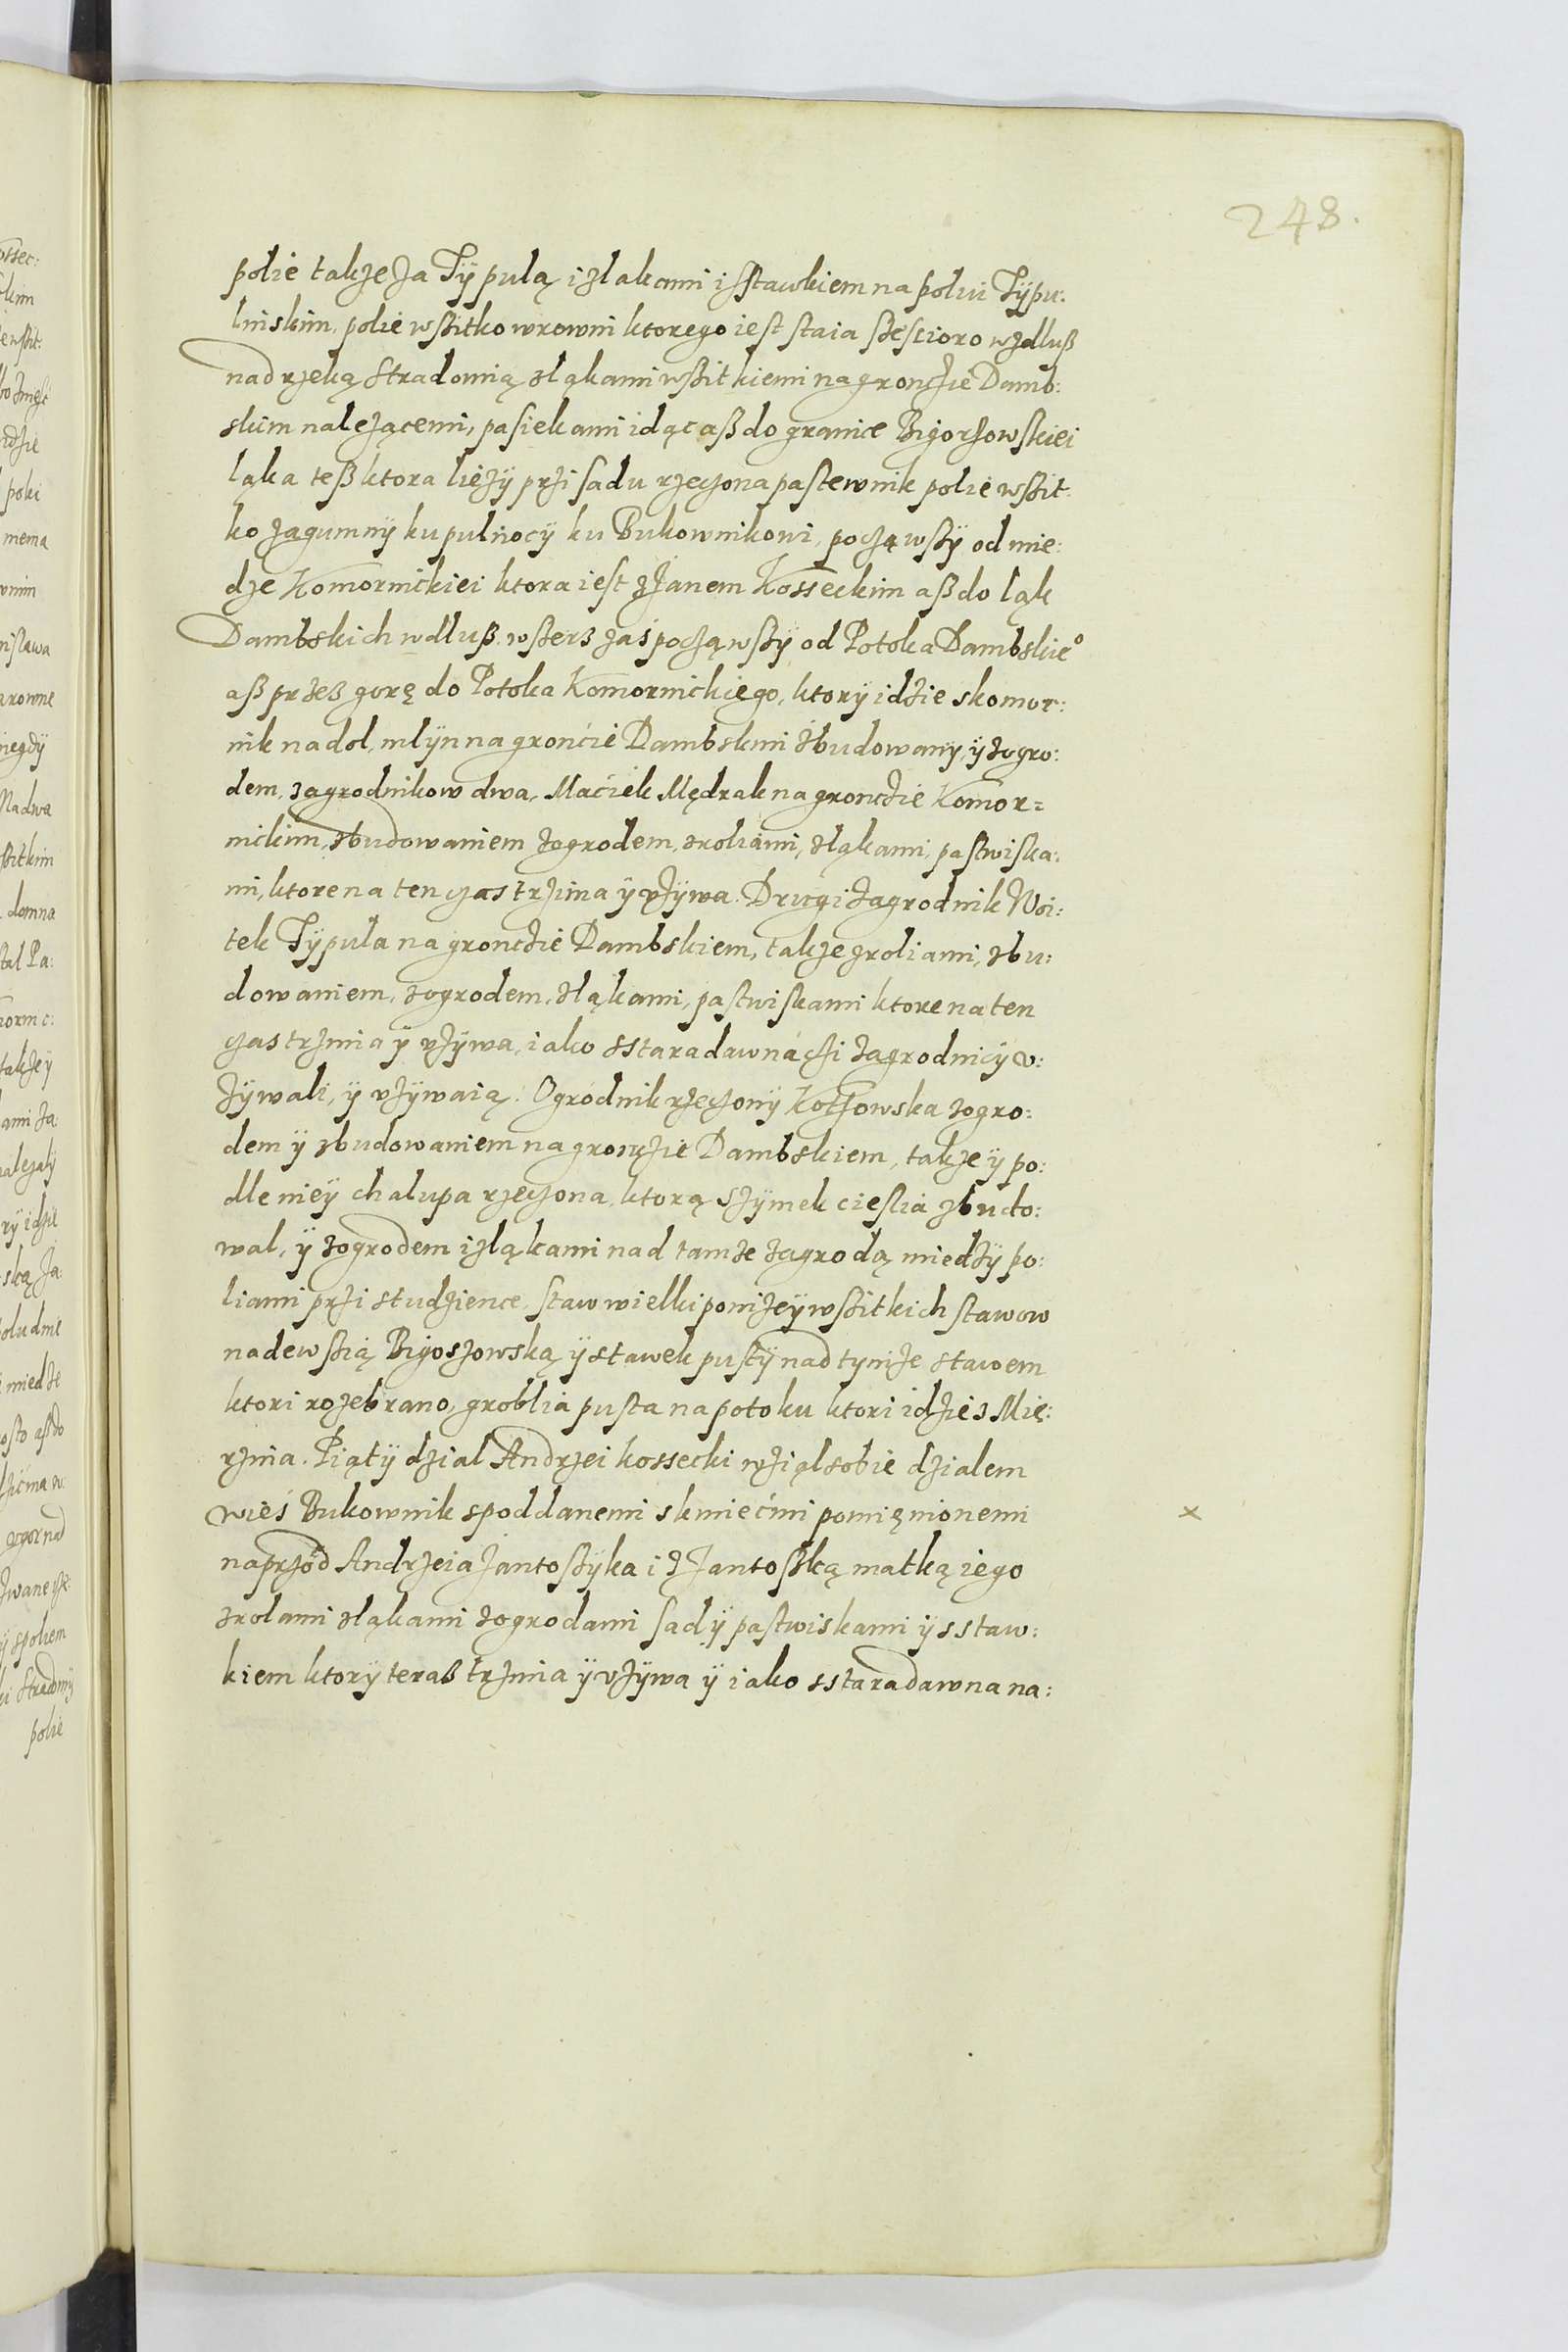 248.
polie takze za Typulą i z lakami i s stawkiem na poliu Typu:
lniskim, polie wßitko w rowni ktorego iest staia sześcioro wzdluß
nad rzeką Stradomią z ląkami wßitkiemi na gronczie Damb:
skim nalezącemi, pasiekami idąc aß do granice Bigorzowskiei
ląka teß ktora lieży przi sadu rzeczona pastewnik polie wßit:
ko za gumny ku pulnocy ku Bukownikowi, począwßy od mie:
dze Komornickiei ktora iest z Janem Kosseckim aß do ląk
Dambskich wdluß wßerz zaś począwßy od Potoka Dambskie°
aß przez gorę do Potoka Komornickiego, ktory idzie s komor:
nik na dol, mlyn na gronćie Dambskim zbudowany, y z ogro:
dem, zagrodnikow dwa, Maciek Mędrak na gronczie Komor=
nickim, z budowaniem z ogrodem, z roliami, z ląkami, pastwiska:
mi, ktore na ten czas trzima y vżywa. Drugi zagrodnik Woi:
tek Typula na gronczie Dambskiem, takze z roliami, z bu:
dowaniem, z ogrodem, z ląkami, pastwiskami ktore na ten
czas trzmia y vżywa, iako s staradawna ći zagrodnicy v:
żywali, y vżywaią. Ogrodnik rzeczony Kotzowska z ogro:
dem y z budowaniem na gronczie Dambskiem, takze y po:
dle niey chalupa rzeczona, ktorą Szymek cieslia zbudo:
wal, y z ogrodem i z ląkami nad tamze zagrodą miedzy po:
liami przi studzience, staw wielki poniżey wßitkich stawow
nade wsią Bigoszowską y stawek pusty nad tymże stawem
ktori rozebrano, groblia pusta na potoku ktori idzie z Mię:
rznia. Piąty dzial Andrzei Kossecki wziąl sobie dzialem
wieś Bukownik s poddanemi s kmiećmi pomięnionemi
naprzod Andrzeia Jantoßyka i z Jantoßką matką iego
z rolami z ląkami z ogrodami sady pastwiskami y s staw:
kiem ktory teraß trzmia y vżywa y iako s staradawna na:
×